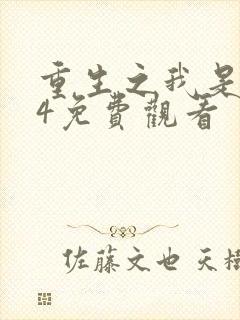 重生之我是
4免費觀看
佐藤文也 天樹